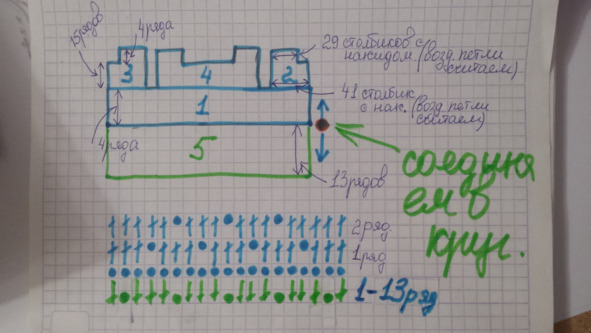 15рядов
4ряда
29 столбиков с
накидом. (возд. петли
считаем)
3
4
2
41 столбик
с нак. (возд петли
считаем)
1
4ряда
5
соединя
ем в
круг.
13рядов
2ряд
1ряд
1-13ряд